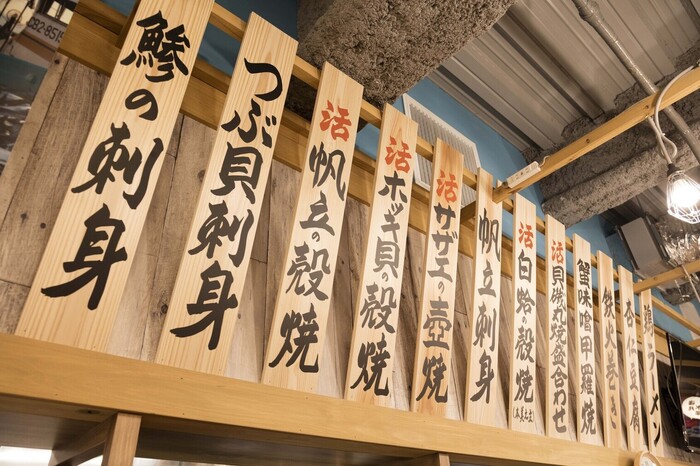 鯵の刺身
つぶ貝刺身
活帆立の殻焼
活ホッキ貝の殻焼
活サザエの壺焼
帆立刺身
活白蛤の殻焼
活貝焼れ焼盛合わせ
蟹味噌甲羅焼
鉄火巻き
冷豆腐